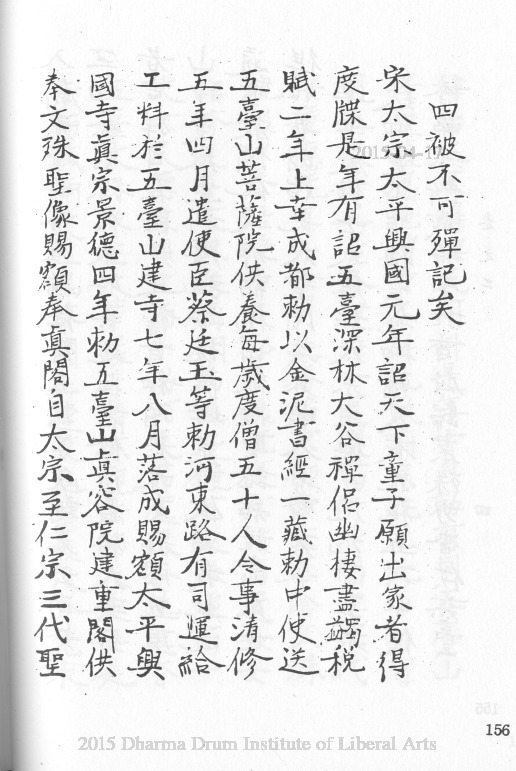 四被不可殫記矣
宋太宗太平興國元年詔天下童子願出家者得
度牒是年有詔五臺深林大谷禪侶幽棲盡蠲稅
賦二年上幸成都勅以金泥書經一藏勅中使送
五臺山菩薩院供養每歲度僧五十人令事清修
五年四月遣使臣蔡廷玉等勅河東路有司運給
工料於五臺山建寺七年八月落成賜額太平興
國寺眞宗景德四年勅五臺山眞容院建重閣供
奉文殊聖像賜額奉眞閣自太宗至仁宗三代聖
156
2015 Dharma Drum Institute of Liberal Arts